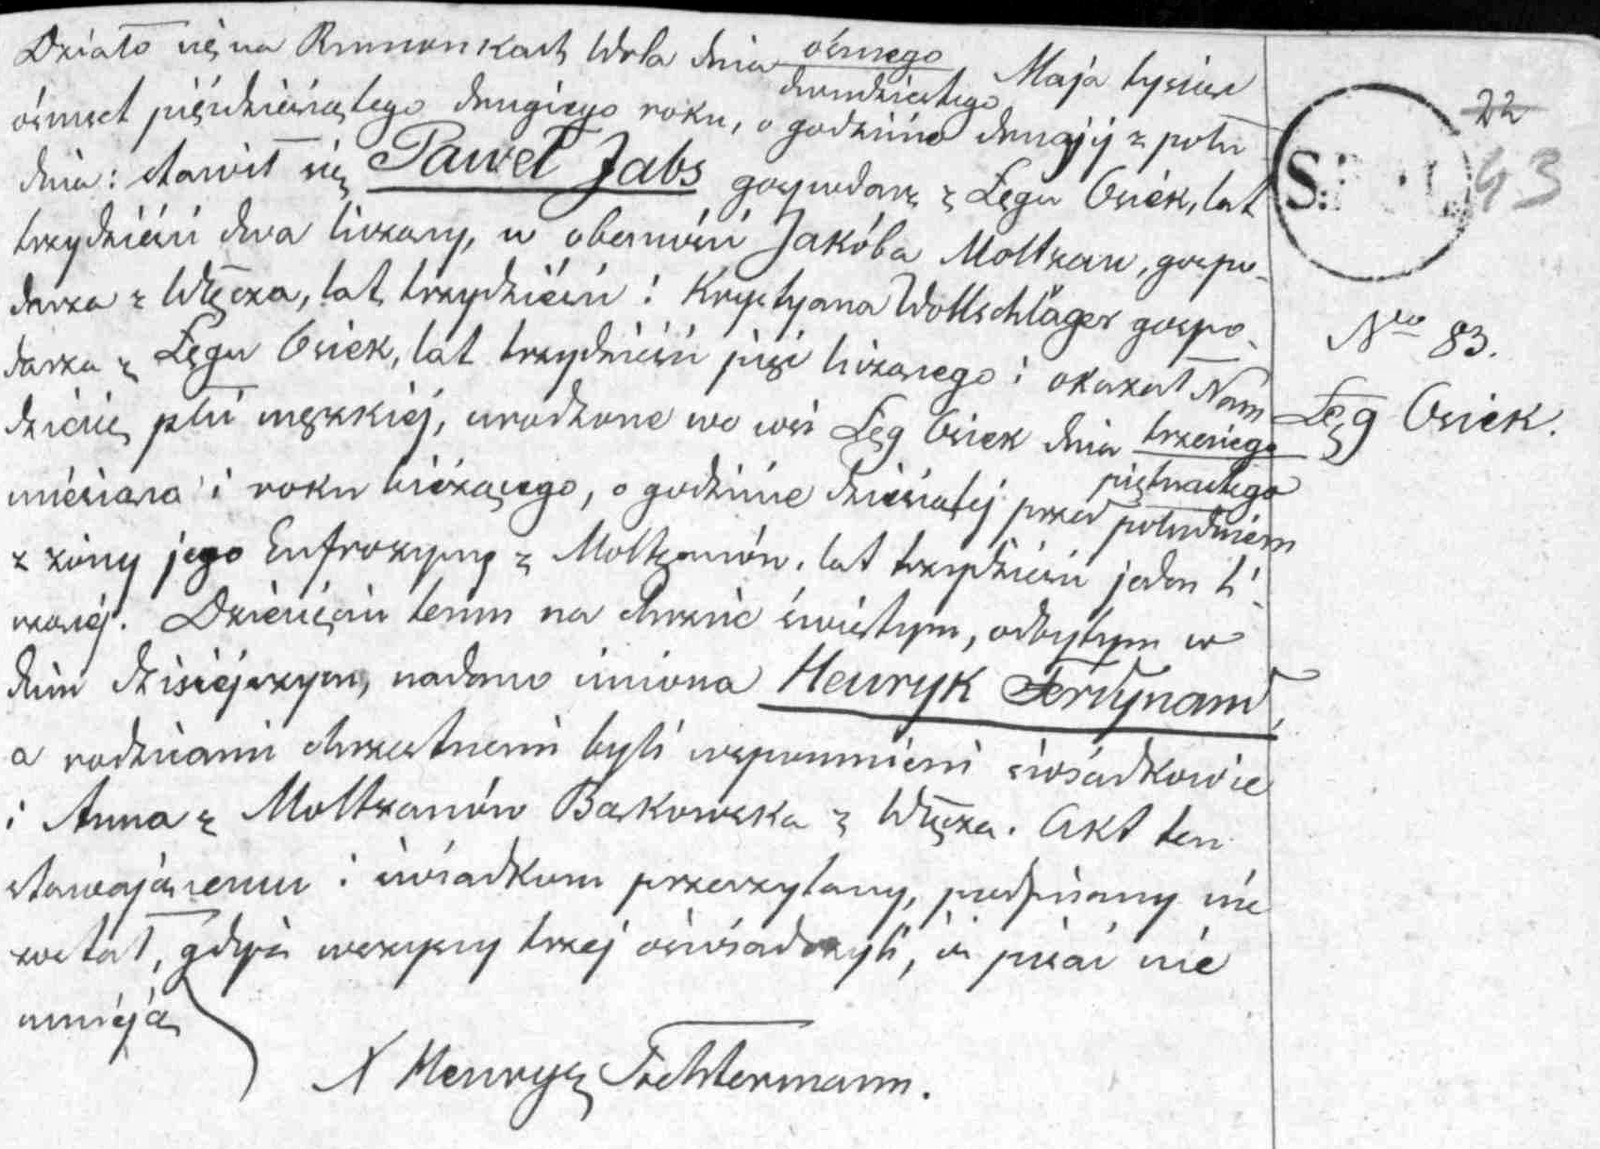 Działo się na Rumunkach Wola dnia ósmego
dwudziestego Maja tysiąc
ósmset pięśdziesiątego drugiego roku, o godzinie drugiéj z połu
dnia: stawił się Paweł Jabs gospodarz z Łęgu Osiek, lat
trzydzieści dwa liczący, w obecności Jakóba Moltzan, gospo-
darza z Włęcza, lat trzydzieści i Krystyana Wollschläger gospo-
darza z Łęgu Osiek, lat trzydzieści pięć liczącego i okazał Nam
dziecię płci męzkiéj, urodzone we wsi Łęg Osiek dnia trzeciego
piętnastego
miesiąca i roku bieżącego, o godzinie dziesiątej przed południem
z żony jego Eufrozyny z Moltzanów, lat trzydzieści jeden li-
czącéj. Dziecięciu temu na chrzcie świętym, odbytym w
dniu dzisiéjszym, nadano imiona Henryk Ferdynand,
a rodzicami chrzestnemi byli wspomnieni świadkowie
i Anna z Moltzanów Baskowska z Włęcza. Akt ten
stawającemu i świadkom przeczytany, podpisany nie
został, gdyż wszyscy trzej oświadczyli, iż pisać nie
umieją
X Henryk Tochtermann.
22
43
S.
Nro 83.
Łęg Osiek.